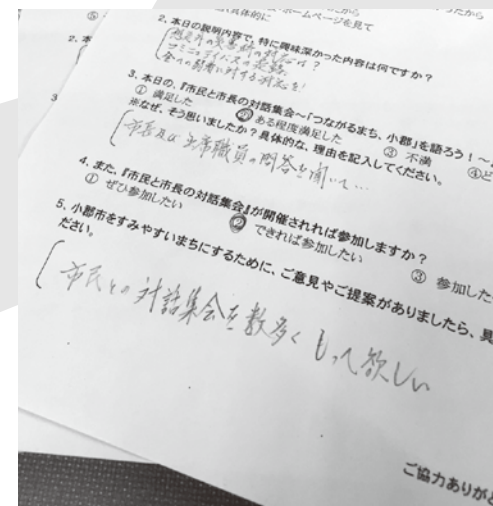 ホームページを見て
2. 本日の説明内容で、特に興味深かった内容は何ですか?
3. 本日の、『市民と市長の対話集会~「つながるまち、小郡」を語ろう!~
① 満足した ② ある程度満足した ③ 不満 ④
※なぜ、そう思いましたか?具体的な、理由を記入してください。
市長及び出席職員の問答を聞いて…
4. また、『市民と市長の対話集会』が開催されれば参加しますか?
① ぜひ参加したい ② できれば参加したい ③ 参加した
5. 小郡市をすみやすいまちにするために、ご意見やご提案がありましたら、具
ださい。
市民との対話集会を数多くもって欲しい
ご協力ありがと